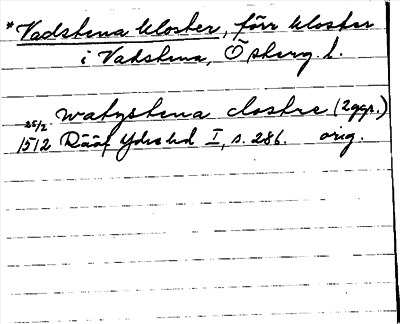 *Vadstena kloster, förr kloster
i Vadstena, Österg. l.
watzstena clostre (2 ggr.)
25/2 1512 Rääf Ydre hd I, s. 286. orig.